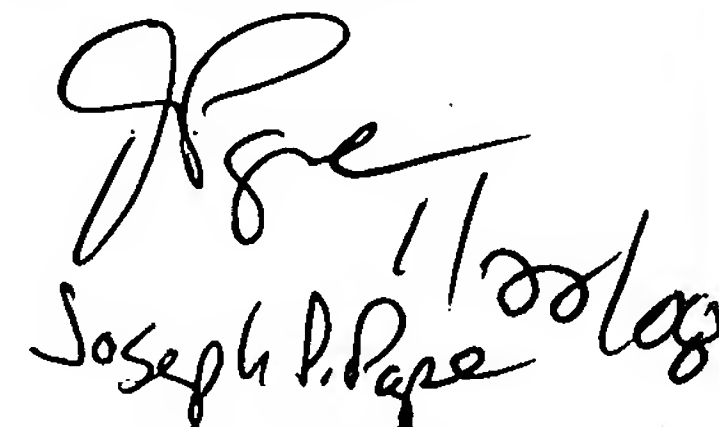 JPape
1/22/08
Joseph P. Pape